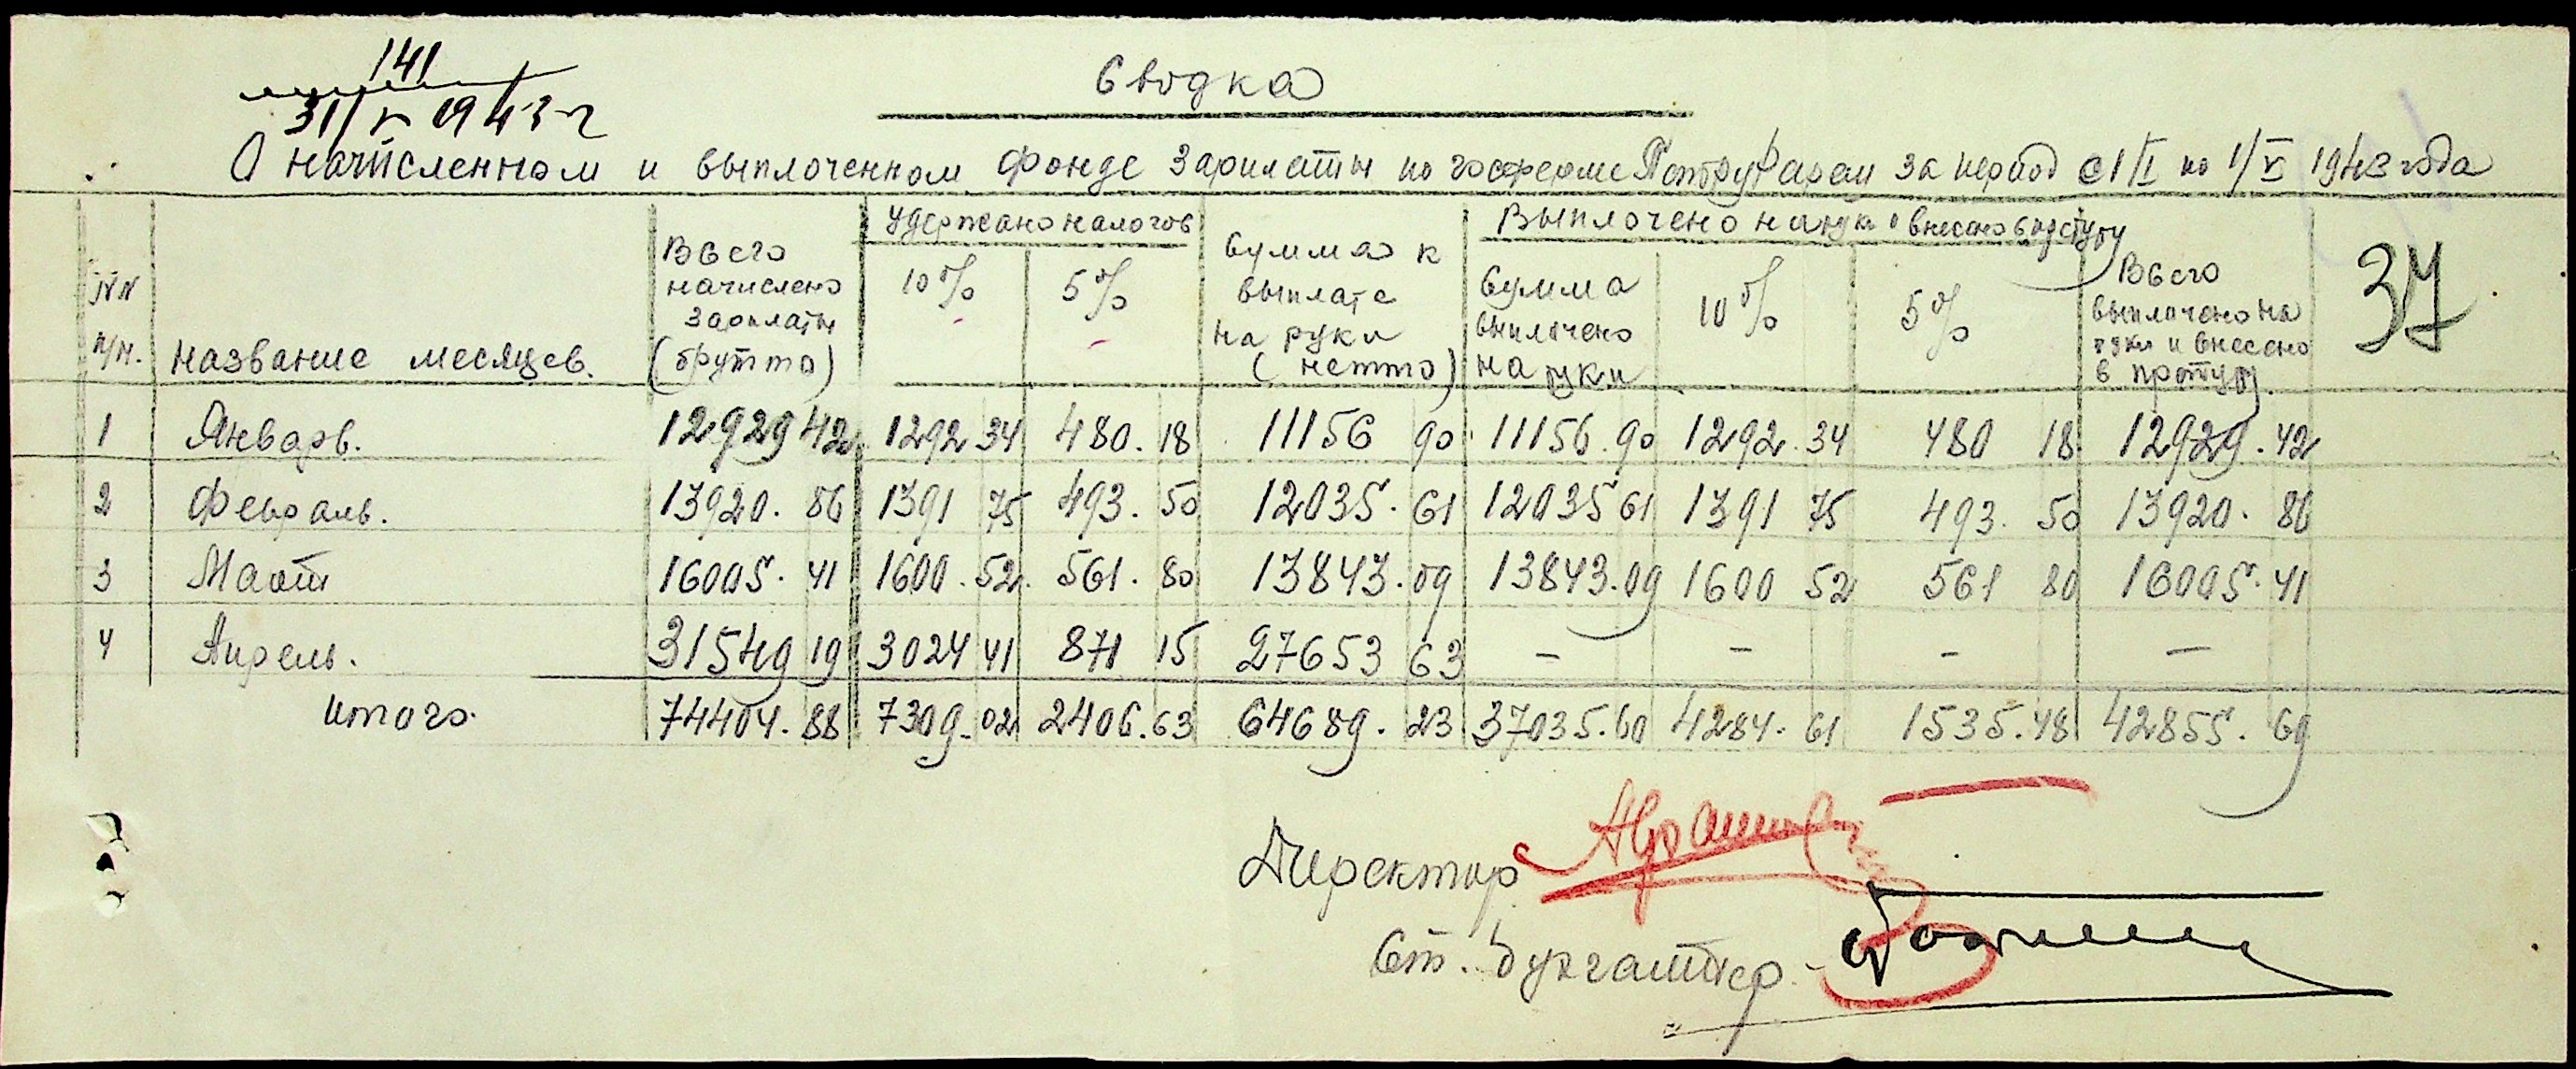 141
31/V 1943 г
Сводка
О начисленном и выплоченном фонде зарплаты по госферме за период с 1/I по 1/V 1943 года
NN п/п. Название месяцев. Всего начислено зарплаты (брутто) Удержано налогов 10% 5% Сумма к выплате на руки (нетто) Выплочено на руки и внесено в Сумма выплочено на руки 10% 5% Всего выплочено на руки и внесено в
37
1 Январь. 12929 42 1292 34 480. 18 11156 90 11156. 90 1292. 34 480 18 12929. 42
2 Февраль. 13920. 86 1391 75 493. 50 12035. 61 12035 61 1391 75 493. 50 13920. 86
3 Март 16005. 41 1600. 52 561. 80 13843. 09 13843. 09 1600 52 561 80 16005. 41
4 Апрель. 31549 19 3024 41 871 15 27653 63 — — — —
Итого. 74404. 88 7309. 02 2406. 63 64689. 23 37035. 60 4284. 61 1535. 48 42855. 69
Директор
Ст. бухгалтер -